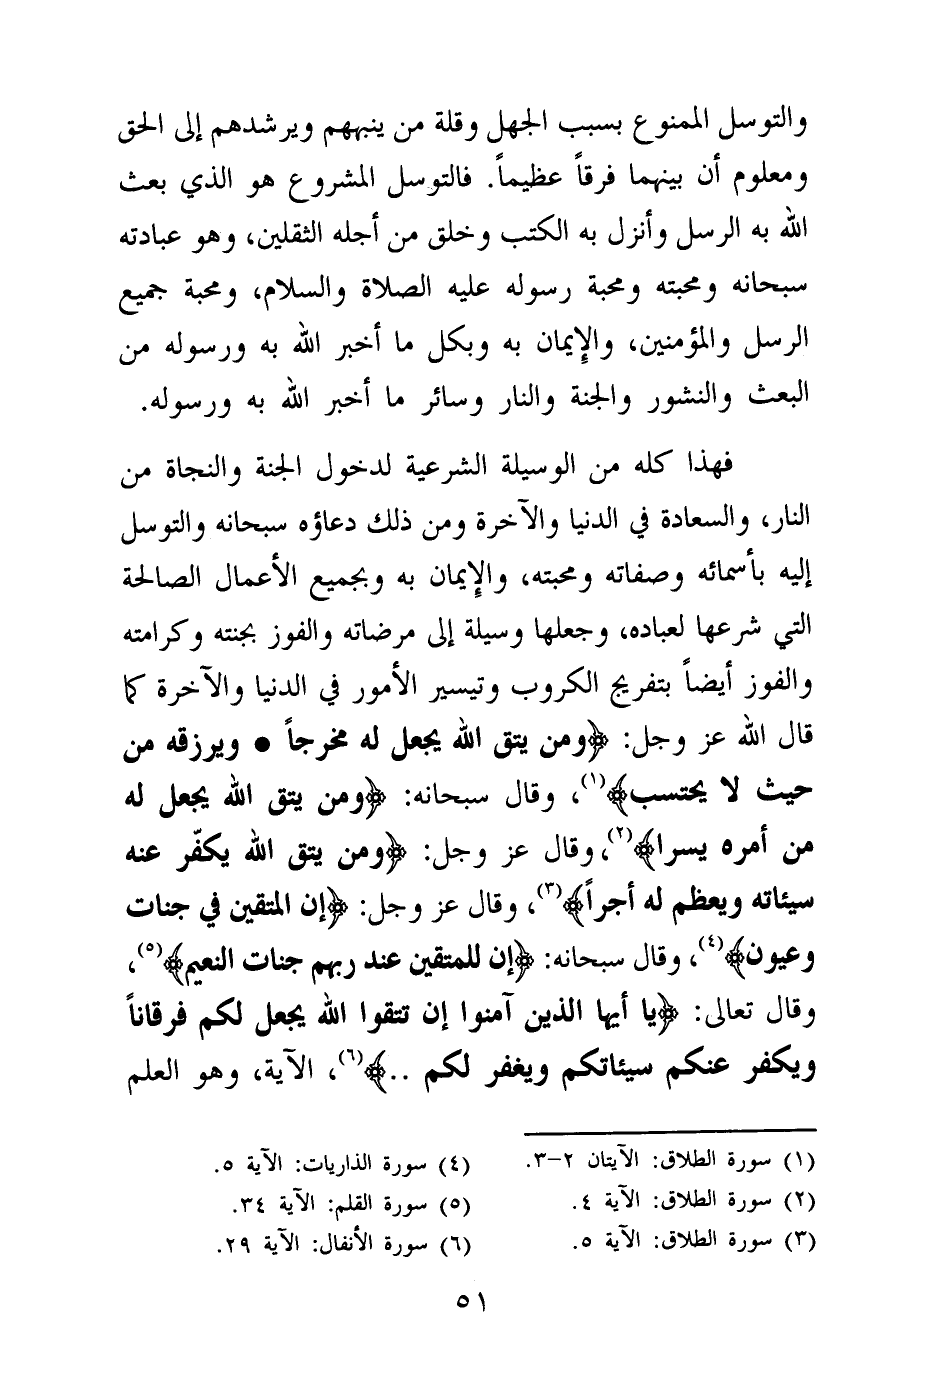 والتوسل الممنوع بسبب الجهل وقلة من ينبههم ويرشدهم إلى الحق
ومعلوم أن بينهما فرقاً عظيماً. فالتوسل المشروع هو الذي بعث
الله به الرسل وأنزل به الكتب وخلق من أجله الثقلين، وهو عبادته
سبحانه ومحبته ومحبة رسوله عليه الصلاة والسلام، ومحبة جميع
الرسل والمؤمنين، والإيمان به وبكل ما أخبر الله به ورسوله من
البعث والنشور والجنة والنار وسائر ما أخبر الله به ورسوله.
فهذا كله من الوسيلة الشرعية لدخول الجنة والنجاة من
النار، والسعادة في الدنيا والآخرة ومن ذلك دعاؤه سبحانه والتوسل
إليه بأسمائه وصفاته ومحبته، والإيمان به وبجميع الأعمال الصالحة
التي شرعها لعباده، وجعلها وسيلة إلى مرضاته والفوز بجنته وكرامته
والفوز أيضاً بتفريج الكروب وتيسير الأمور في الدنيا والآخرة كما
قال الله عز وجل: ﴿ومن يتق الله يجعل له مخرجاً ● ويرزقه من
حيث لا يحتسب﴾(١)، وقال سبحانه: ﴿ومن يتق الله يجعل له
من أمره يسرا﴾(٢)، وقال عز وجل: ﴿ومن يتق الله يكفّر عنه
سيئاته ويعظم له أجراً﴾(٣)، وقال عز وجل: ﴿إن المتقين في جنات
وعيون﴾(٤)، وقال سبحانه: ﴿إن للمتقين عند ربهم جنات النعيم﴾(٥)،
وقال تعالى: ﴿يا أيها الذين آمنوا إن تتقوا الله يجعل لكم فرقاناً
ويكفر عنكم سيئاتكم ويغفر لكم ..﴾(٦)، الآية، وهو العلم
(١) سورة الطلاق: الآيتان ٢–٣.
(٢) سورة الطلاق: الآية ٤.
(٣) سورة الطلاق: الآية ٥.
(٤) سورة الذاريات: الآية ٥.
(٥) سورة القلم: الآية ٣٤.
(٦) سورة الأنفال: الآية ٢٩.
٥١